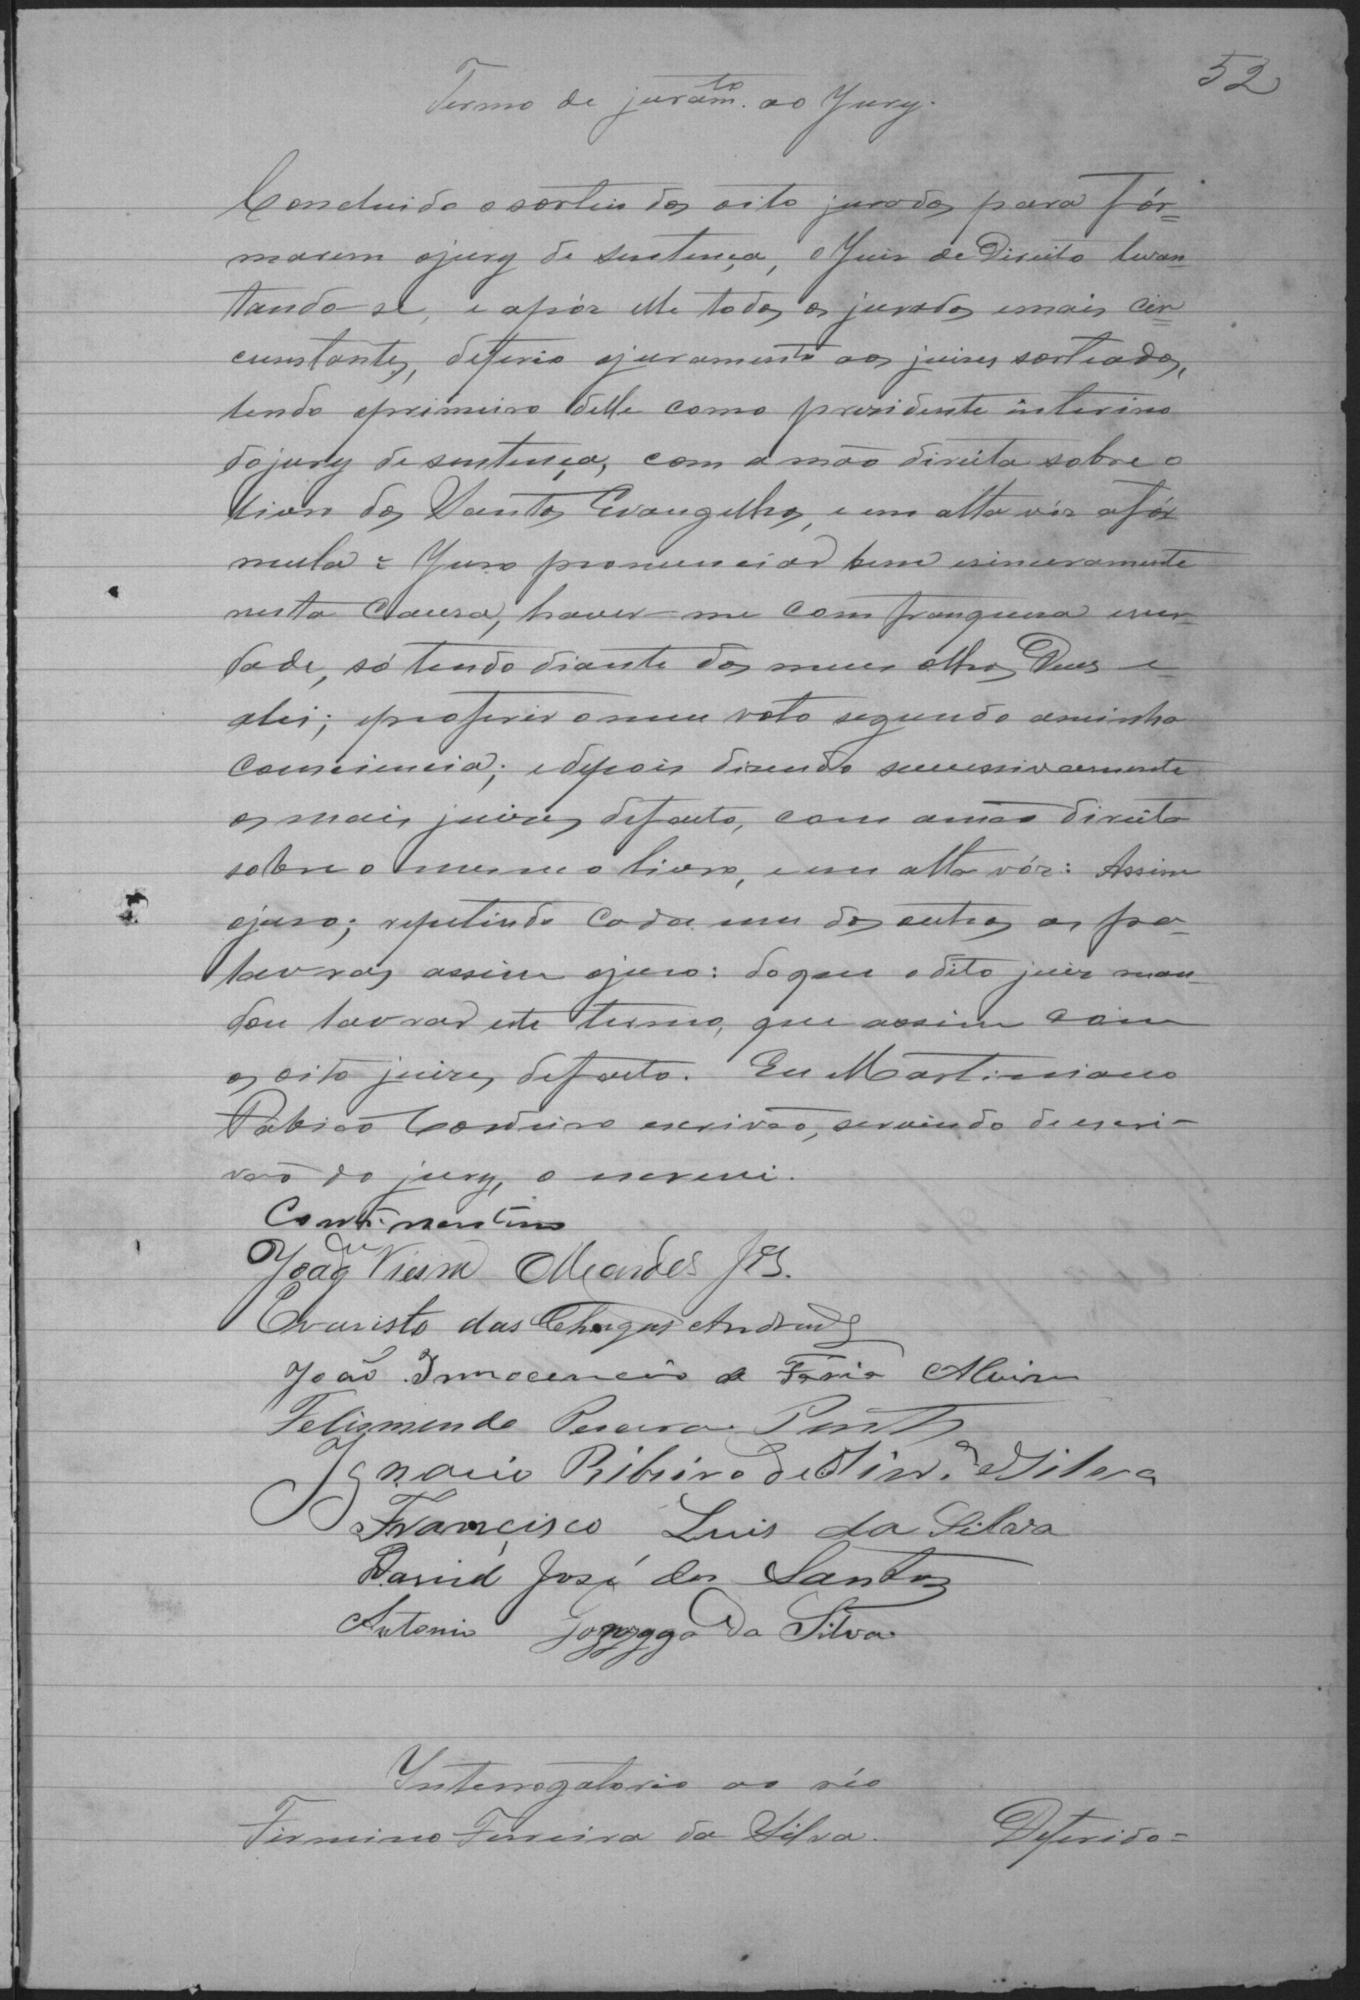 52
Termo de juramto. ao Jury.
Concluido o sorteio dos oito jurados para fór=
marem o jury de sentença, o Juiz de Direito levan
tando-se, e após elle todos os jurados e mais cir=
cunstantes, deferio o juramento aos juizes sorteados,
lendo o primeiro delle como prezidente interino
do jury de sentença, com a mão direita sobre o
livro dos Santos Evangelhos, e em alta vóz a fór
mula = Juro pronunciar bem e sinceramente
nesta Causa, haver-me com franqueza e ver-
dade, só tendo diante dos meus olhos Deus e
a lei; e proferir o meu voto segundo a minha
consciencia; e depois dizendo successivamente
os mais juizes de facto, com a mão direita
sobre o mesmo livro, e em alta vóz: Assim
o juro; repetindo cada um dos outros as pa-
lavras assim o juro: do que o dito juiz man-
dou lavrar este termo, que assina com
os oito juizes de facto. Eu Martiniano
Cordeiro escrivão, servindo de escri-
vão do jury, o escrevi.
João Vieira Mendes Jor.
Evaristo das Chagas Andrade
João Innocencio de Faria Alvim
Felismindo Pereira Pinto
Ignacio Ribeiro de Silva
Francisco Luis da Silva
David José dos Santos
Antonio Gonzaga da Silva
Interrogatorio ao réo
Firmino Ferreira da Silva. Deferido=